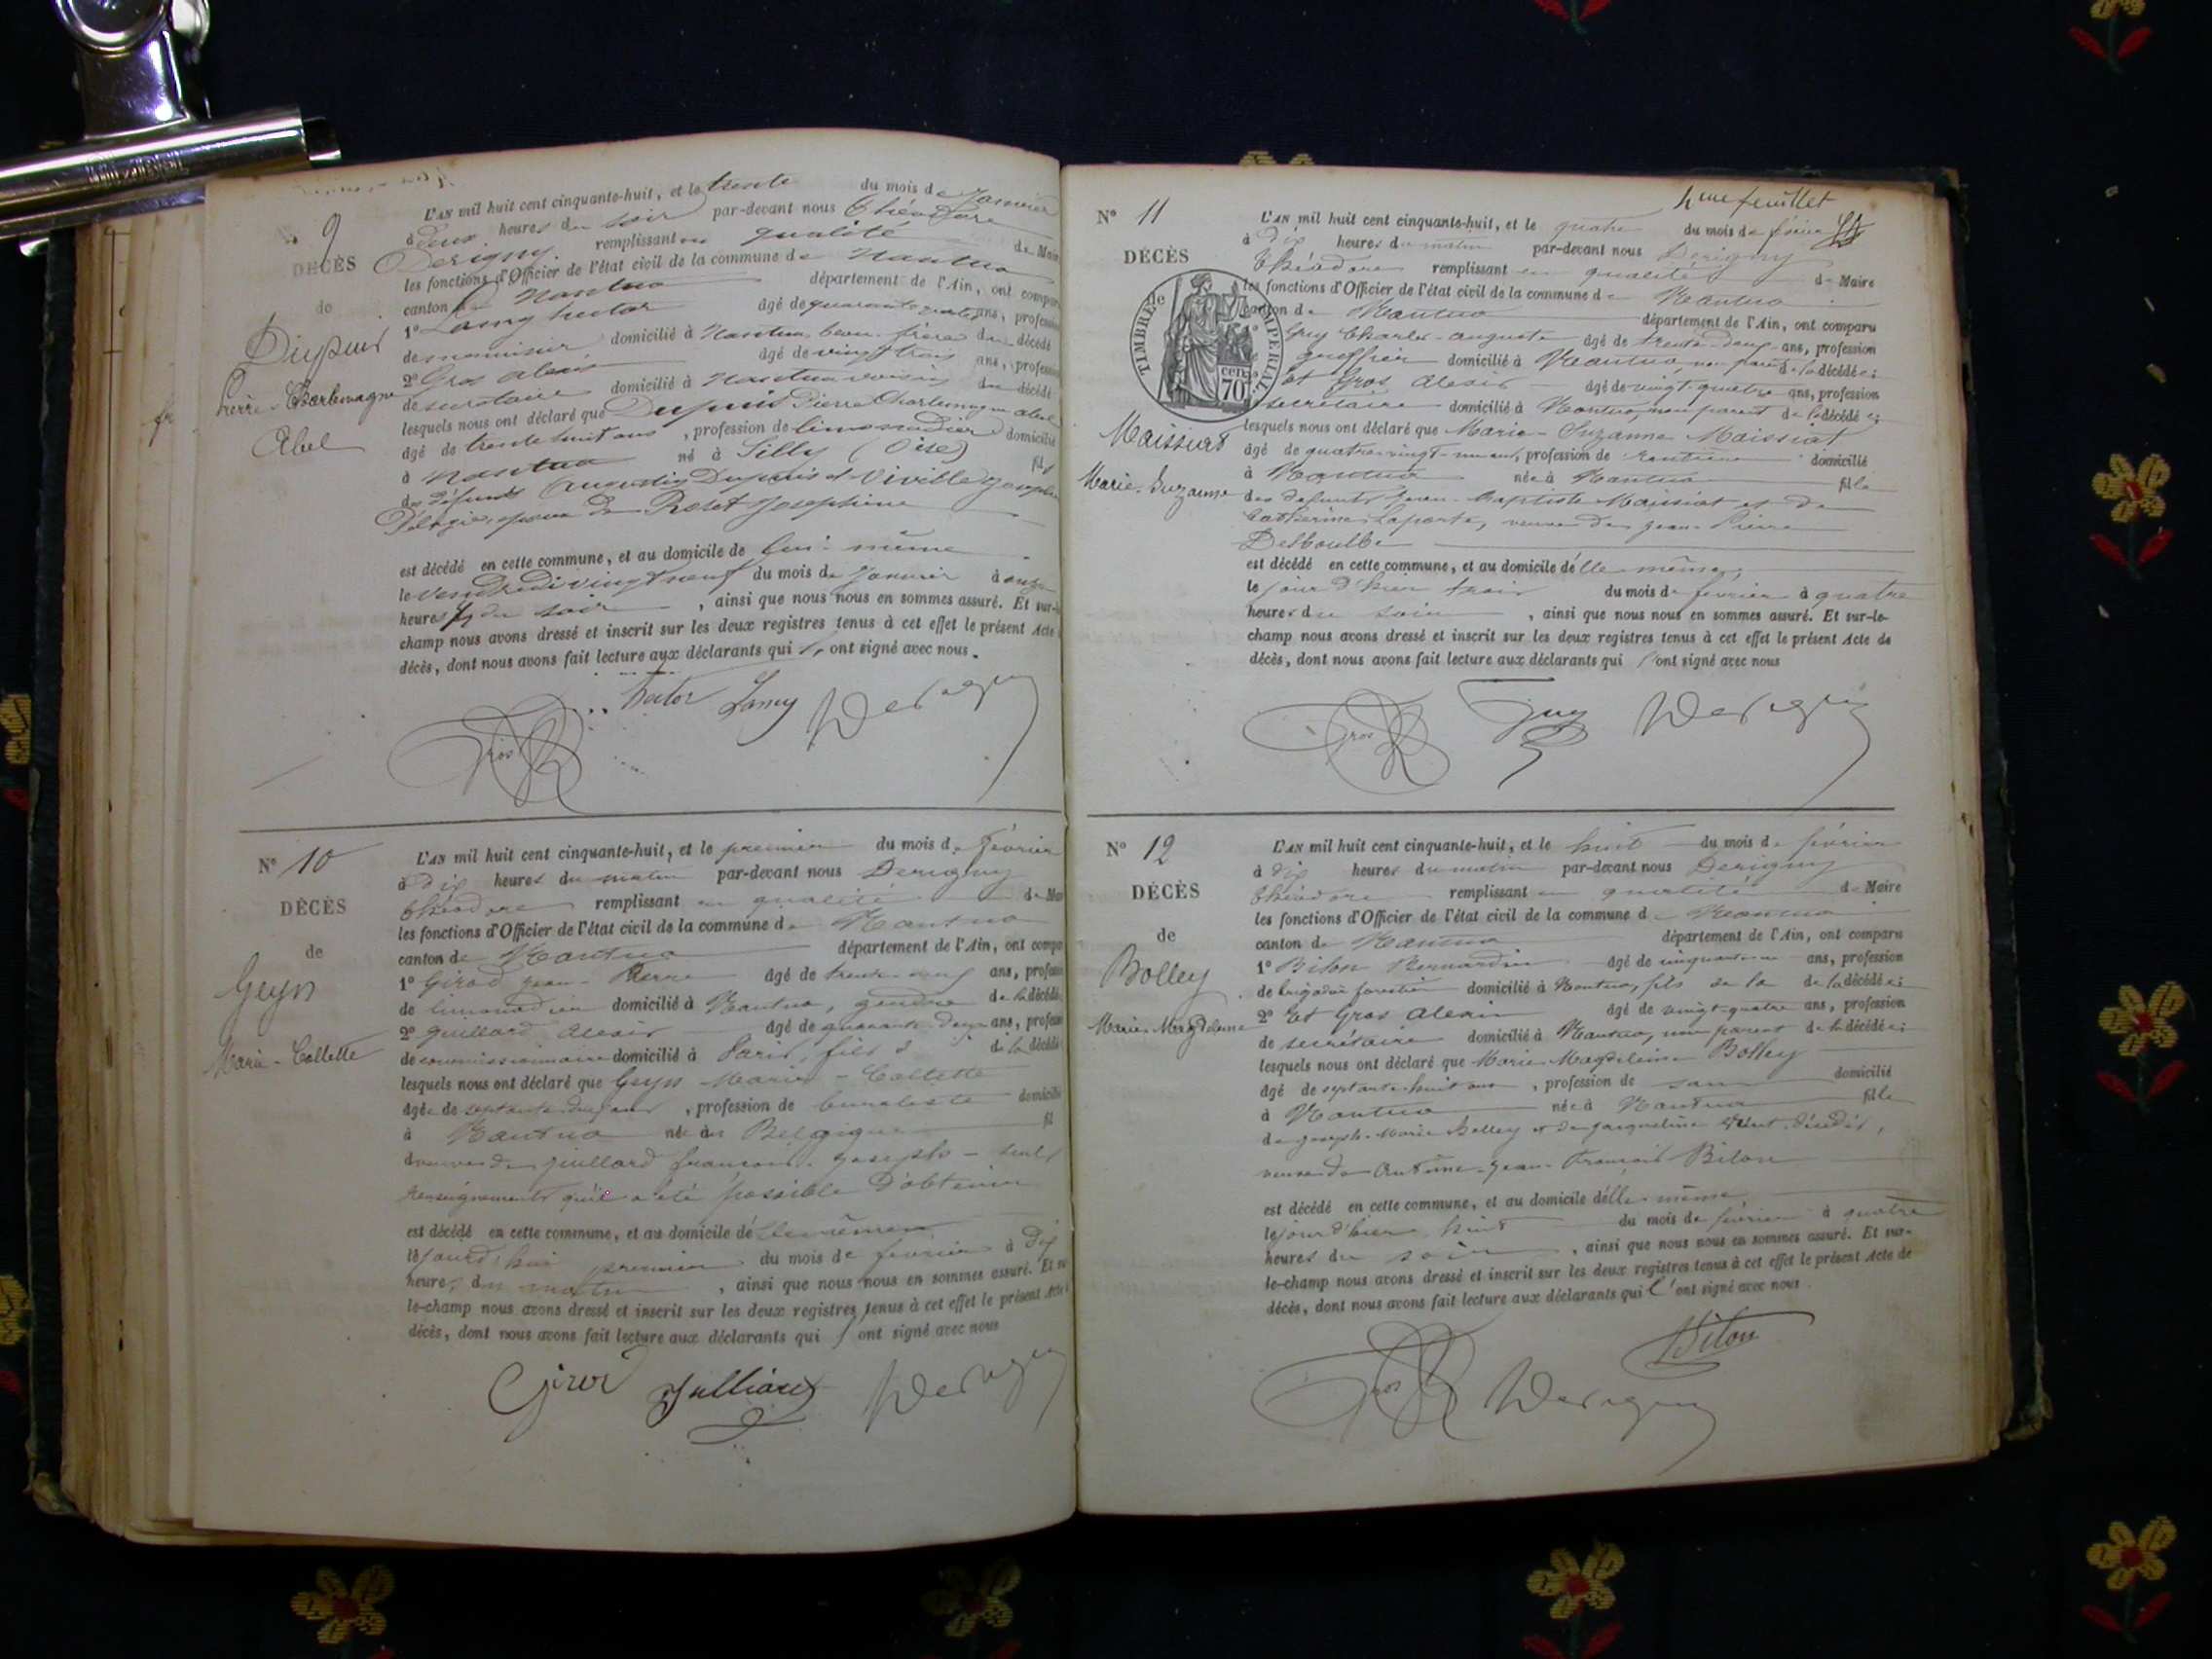 N° 9
DÉCÈS
de
Dupuis
Pierre-Charlemagne
Abel
L'AN mil huit cent cinquante-huit, et le trente du mois de Janvier
à Deux heures du soir par-devant nous Théodore
Derigny remplissant en qualité de Maire
les fonctions d'Officier de l'état civil de la commune de Nantua
canton de Nantua département de l'Ain, ont comparu
1° Lamy hector âgé de quarante quatre ans, profession
de menuisier domicilié à Nantua, beau-frère du décédé
2° Gros alexis âgé de vingt trois ans, profession
de secrétaire domicilié à Nantua voisin du décédé
lesquels nous ont déclaré que Dupuis Pierre Charlemagne abel
âgé de trente huit ans, profession de limonadier domicilié
à Nantua né à Silly (Oise) fils
des défunts Augustin Dupuis et Viville Josephine
époux de Rolet Josephine
est décédé en cette commune, et au domicile de lui-même
le vendredi vingt neuf du mois de Janvier à onze
heures du soir, ainsi que nous nous en sommes assuré. Et sur-le-
champ nous avons dressé et inscrit sur les deux registres tenus à cet effet le présent Acte de
décès, dont nous avons fait lecture aux déclarants qui l'ont signé avec nous.
hector Lamy Derigny
Gros
N° 10
DÉCÈS
de
Geyn
Marie-Collette
L'AN mil huit cent cinquante-huit, et le premier du mois de février
à dix heures du matin par-devant nous Derigny
Théodore remplissant en qualité de Maire
les fonctions d'Officier de l'état civil de la commune de Nantua
canton de Nantua département de l'Ain, ont comparu
1° Girod jean-Pierre âgé de trente-neuf ans, profession
de limonadier domicilié à Nantua, gendre de la décédée
2° Juillard alexis âgé de quarante-deux ans, profession
de commissionnaire domicilié à Paris, fils de la décédée
lesquels nous ont déclaré que Geyn Marie-Collette
âgée de septante deux ans, profession de buraliste domiciliée
à Nantua née en Belgique fil
veuve de Juillard françois-joseph - seuls
renseignements qu'il a été possible d'obtenir
est décédé en cette commune, et au domicile d'elle même
le jourd'hui premier du mois de février à dix
heures du matin, ainsi que nous nous en sommes assuré. Et sur-
le-champ nous avons dressé et inscrit sur les deux registres tenus à cet effet le présent Acte de
décès, dont nous avons fait lecture aux déclarants qui l'ont signé avec nous
Girod Julliard Derigny
4me feuillet
N° 11
DÉCÈS
de
TIMBRE IMPERIAL
70 cen.
Maissiat
Marie-Suzanne
L'AN mil huit cent cinquante-huit, et le quatre du mois de février
à Dix heures du matin par-devant nous Derigny
Théodore remplissant en qualité de Maire
les fonctions d'Officier de l'état civil de la commune de Nantua
canton de Nantua département de l'Ain, ont comparu
1° Guy Charles-auguste âgé de trente-deux ans, profession
de greffier domicilié à Nantua, non parent de la décédée;
2° et Gros alexis âgé de vingt-quatre ans, profession
de secrétaire domicilié à Nantua, non parent de la décédée;
lesquels nous ont déclaré que Marie-Suzanne Maissiat
âgé de quatre-vingt-un ans, profession de rentière domicilié
à Nantua née à Nantua fille
des défunts jean-baptiste Maissiat et de
Catherine Laporte, veuve de jean-Pierre
Delboulbe
est décédé en cette commune, et au domicile d'elle même,
le jour d'hier trois du mois de février à quatre
heures du soir, ainsi que nous nous en sommes assuré. Et sur-le-
champ nous avons dressé et inscrit sur les deux registres tenus à cet effet le présent Acte de
décès, dont nous avons fait lecture aux déclarants qui l'ont signé avec nous
Gros Guy Derigny
N° 12
DÉCÈS
de
Bolley
Marie-Magdeleine
L'AN mil huit cent cinquante-huit, et le huit du mois de février
à dix heures du matin par-devant nous Derigny
Théodore remplissant en qualité de Maire
les fonctions d'Officier de l'état civil de la commune de Nantua
canton de Nantua département de l'Ain, ont comparu
1° Bilon Bernardin âgé de cinquante ans, profession
de brigadier forestier domicilié à Nantua, fils de la de la décédée;
2° et Gros alexis âgé de vingt-quatre ans, profession
de secrétaire domicilié à Nantua, non parent de la décédée;
lesquels nous ont déclaré que Marie-Magdeleine Bolley
âgé de septante-huit ans, profession de sans domicilié
à Nantua née à Nantua fille
de joseph-Marie Bolley et de jacqueline décédés,
veuve de Antoine-jean-François Bilon
est décédé en cette commune, et au domicile d'elle-même
le jour d'hier huit du mois de février à quatre
heures du soir, ainsi que nous nous en sommes assuré. Et sur-
le-champ nous avons dressé et inscrit sur les deux registres tenus à cet effet le présent Acte de
décès, dont nous avons fait lecture aux déclarants qui l'ont signé avec nous
Bilon
Gros Derigny